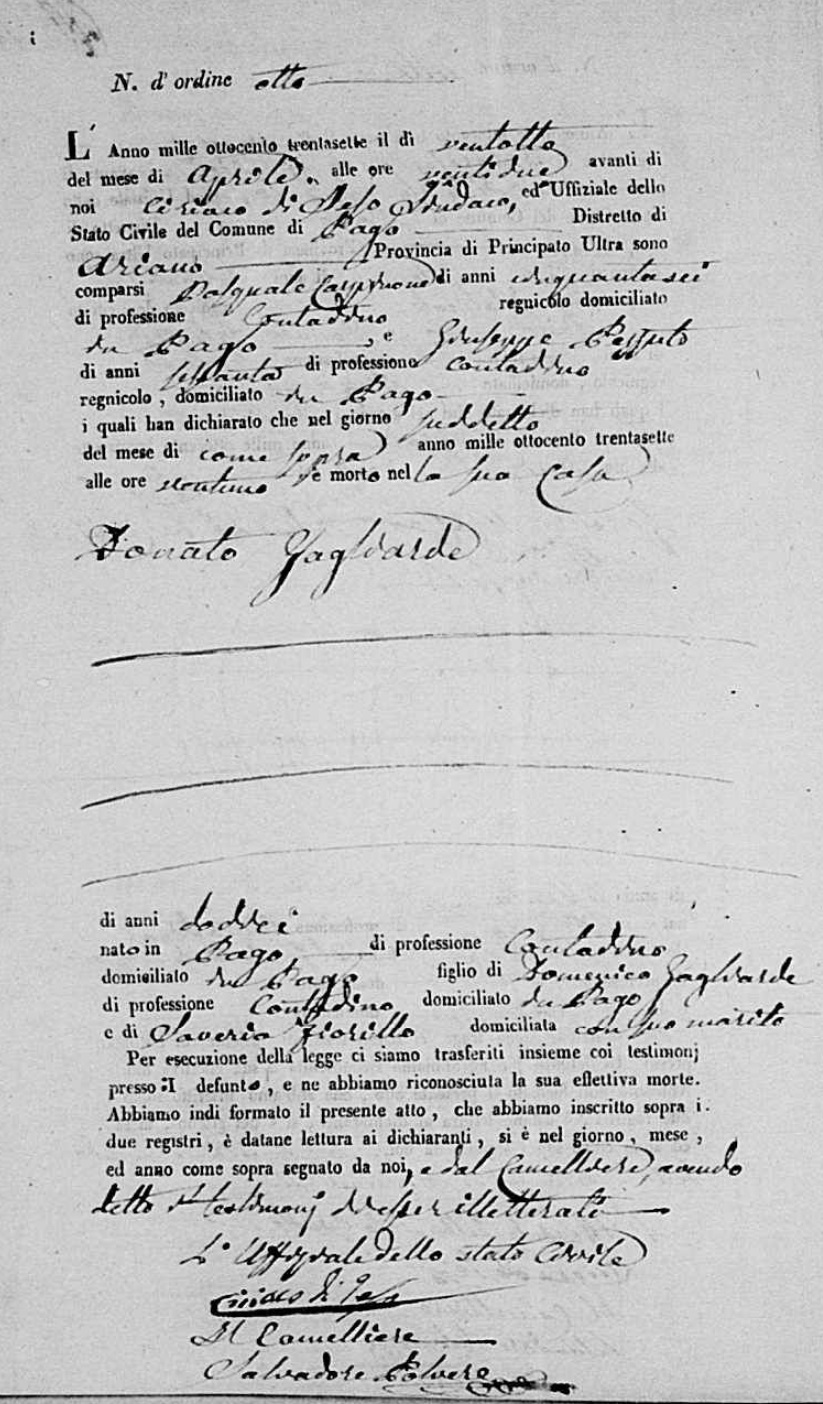 N. d' ordine otto
L' Anno mille ottocento trentasette il dì ventotto
del mese di Aprile alle ore ventidue avanti di
noi Ciriaco di Peso Sindaco, ed Uffiziale dello
Stato Civile del Comune di Pago Distretto di
Ariano Provincia di Principato Ultra sono
comparsi Pasquale di anni cinquantasei
di professione Contadino regnicolo domiciliato
in Pago, e Giuseppe
di anni sessanta di professione contadino
regnicolo, domiciliato in Pago
i quali han dichiarato che nel giorno suddetto
del mese di come sopra anno mille ottocento trentasette
alle ore è morto nella sua Casa
Donato Gagliarde
di anni dodici
nato in Pago di professione Contadino
domiciliato in Pago figlio di Domenico Gagliarde
di professione Contadino domiciliato in Pago
e di Saveria Fiorillo domiciliata con suo marito
Per esecuzione della legge ci siamo trasferiti insieme coi testimonj
presso il defunto, e ne abbiamo riconosciuta la sua effettiva morte.
Abbiamo indi formato il presente atto, che abbiamo inscritto sopra i
due registri, è datane lettura ai dichiaranti, si è nel giorno, mese,
ed anno come sopra segnato da noi, e dal Cancelliere, avendo
detto i testimonj di esser illetterati
L' Uffiziale dello stato Civile
Ciriaco di Peso
Il Cancelliere
Salvadore Polvere